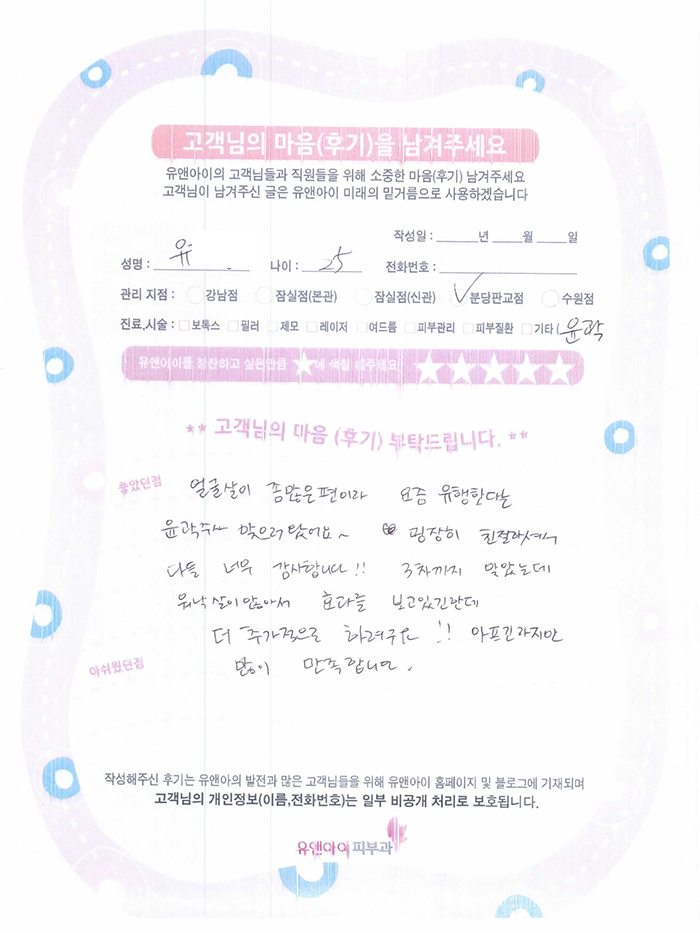 고객님의 마음(후기)을 남겨주세요
유앤아이의 고객님들과 직원들을 위해 소중한 마음(후기) 남겨주세요
고객님이 남겨주신 글은 유앤아이 미래의 밑거름으로 사용하겠습니다
작성일 : ______년 _____월 _____일
성명 : 유 나이 : 25 전화번호 :
관리 지점 : 강남점 잠실점(본관) 잠실점(신관) 분당판교점 수원점
진료,시술 : 보톡스 필러 제모 레이저 여드름 피부관리 피부질환 기타 ( 윤곽
유앤아이를 칭찬하고 싶은만큼 ★에 색칠 해주세요 ★★★★★
** 고객님의 마음 (후기) 부탁드립니다. **
좋았던점
얼굴살이 좀많은편이라 요즘 유행한다는
윤곽주사 맞으러 왔어요~ ♡ 굉장히 친절하셔서
다들 너무 감사합니다!! 3차까지 맞았는데
워낙 살이 많아서 효과를 보고있긴한데
더 추가적으로 하려구요!! 아프긴하지만
아쉬웠던점
많이 만족합니다.
작성해주신 후기는 유앤아의 발전과 많은 고객님들을 위해 유앤아이 홈페이지 및 블로그에 기재되며
고객님의 개인정보(이름,전화번호)는 일부 비공개 처리로 보호됩니다.
유앤아이피부과